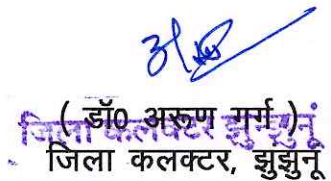 ( डॉ0 अरूण गर्ग )
जिला कलक्टर झुन्झुनूं
जिला कलक्टर, झुझुनू